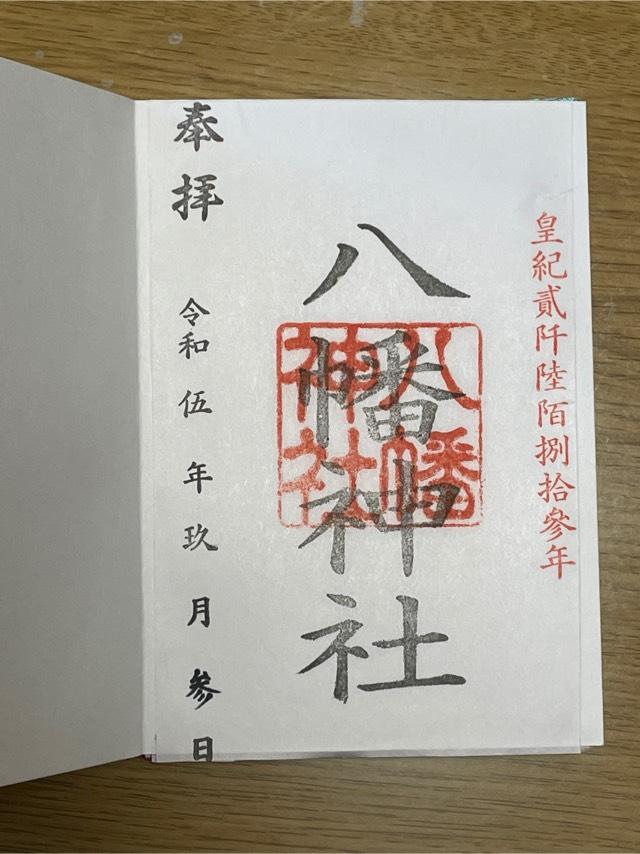 皇紀貳阡陸陌捌拾參年
八幡神社
八幡
神社
奉拝
令和伍年玖月参日